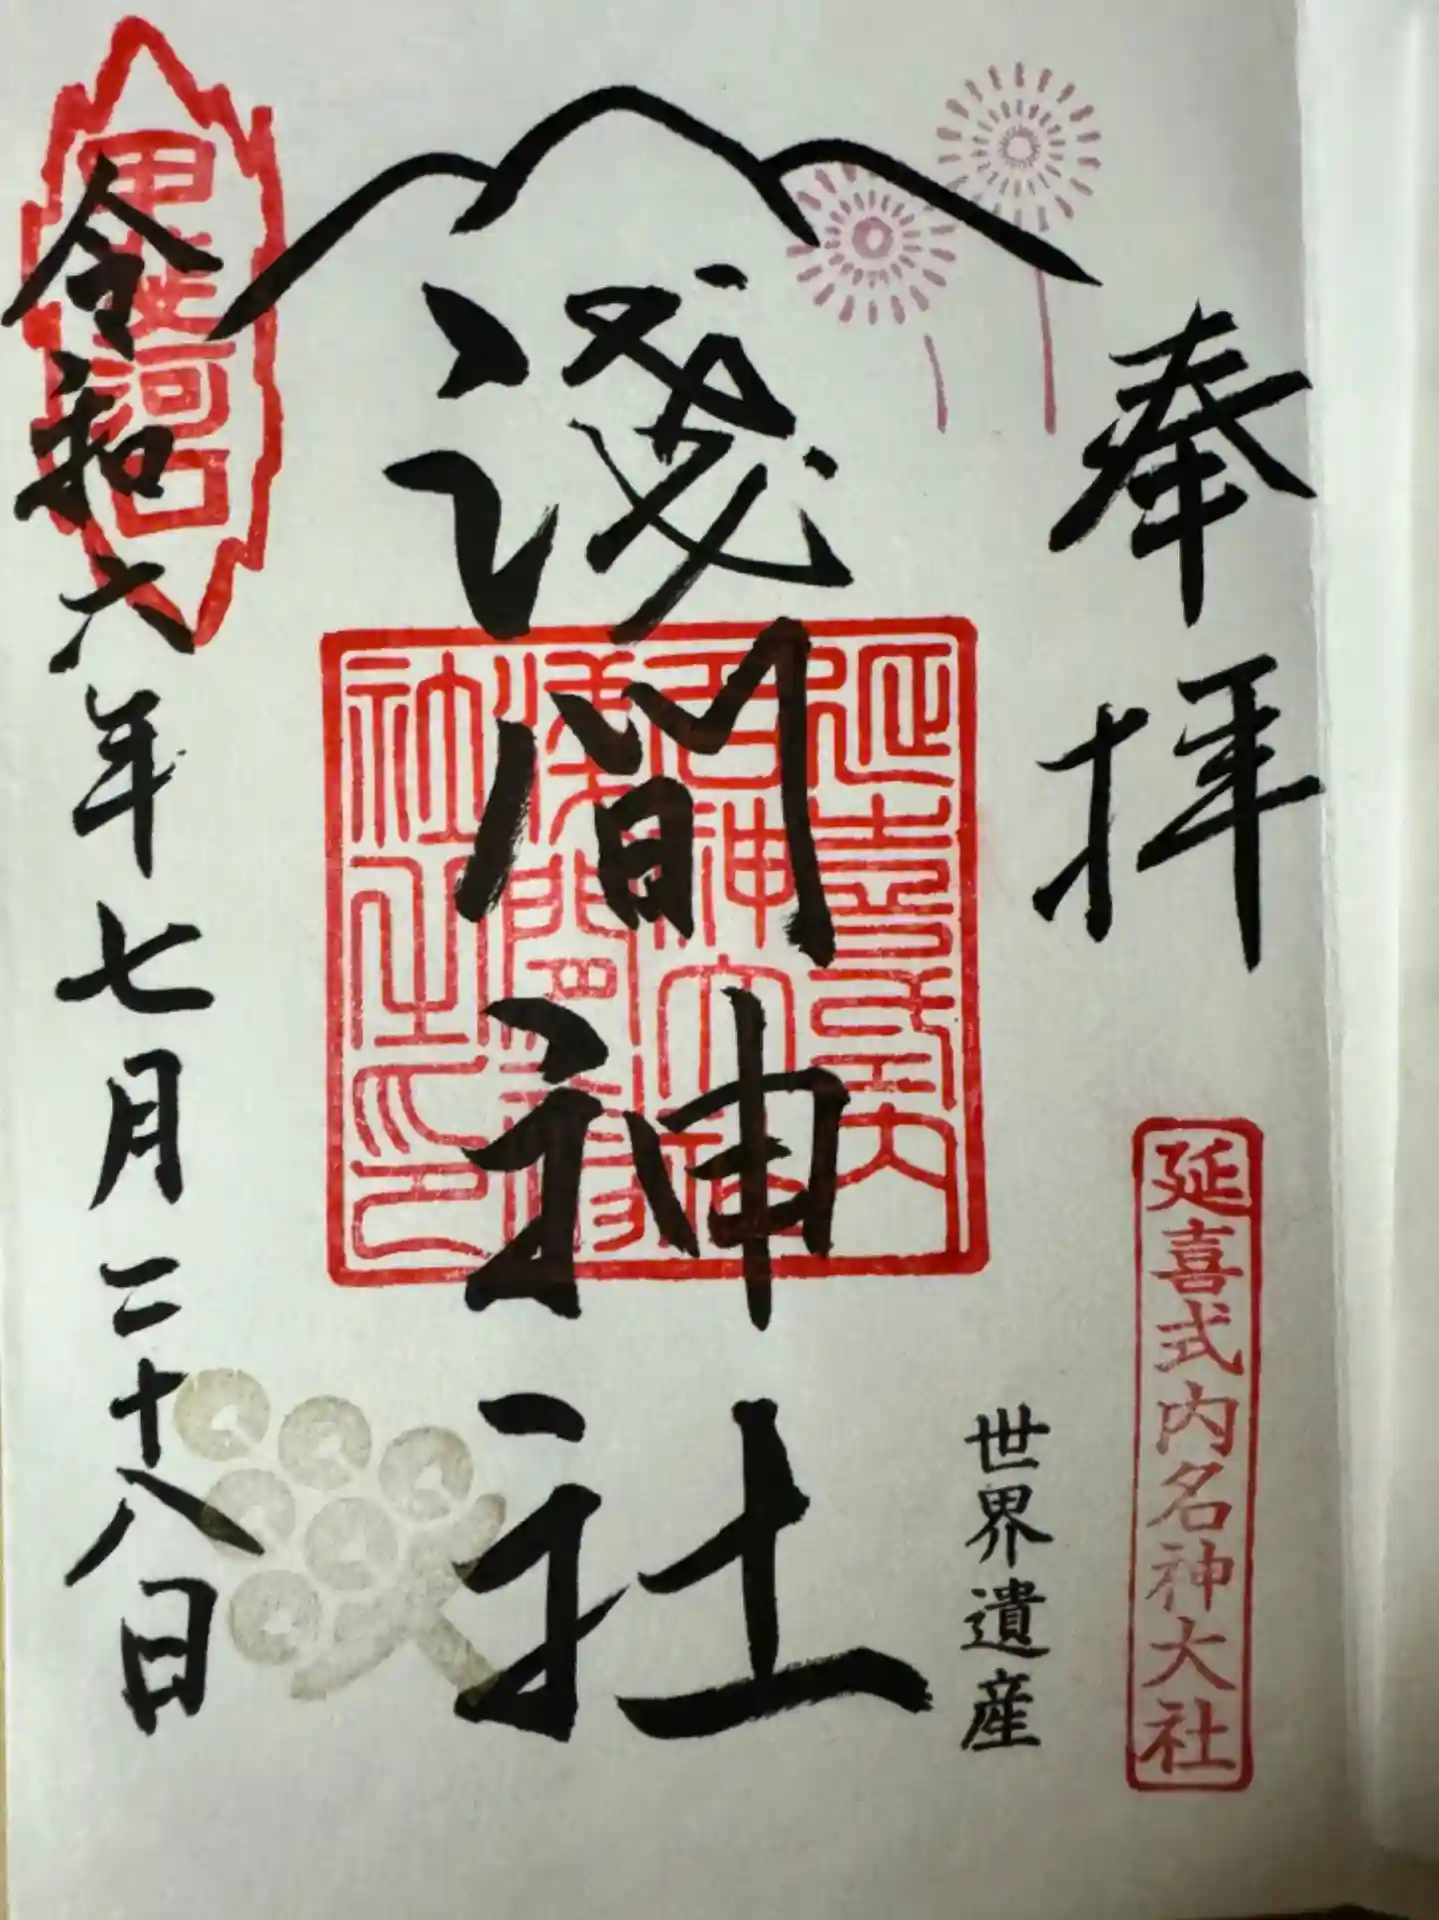 奉拝
延喜式内名神大社
世界遺産
淺間神社
延喜式内
名神大
社之印
甲斐河口
令和六年七月二十八日